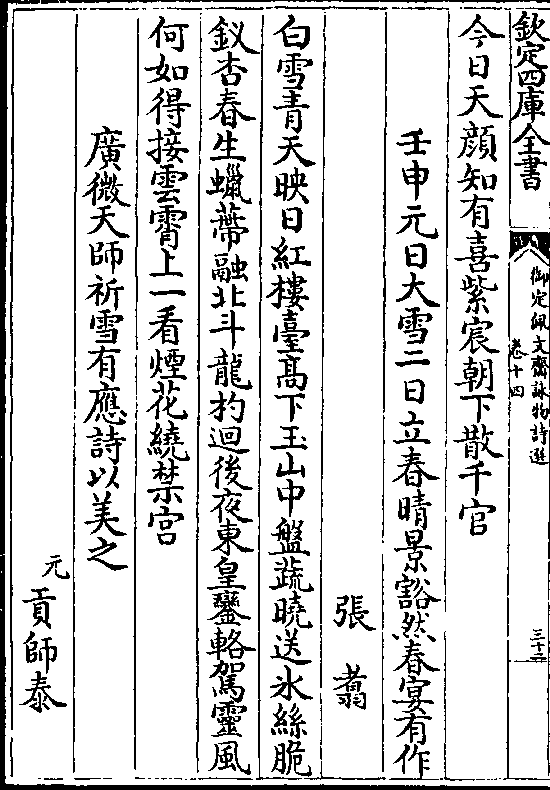 欽定四庫全書
御定佩文齋詠物詩選
卷十四
三十二
今日天顔知有喜紫宸朝下散千官
壬申元日大雪二日立春晴景豁然春宴有作
張翥
白雪青天映日紅樓臺髙下玉山中盤蔬曉送氷絲脆
釵杏春生蠟蔕融北斗龍杓迴後夜東皇鑾輅駕靈風
何如得接雲霄上一看煙花繞禁宫
廣微天師祈雪有應詩以美之
元
貢師泰